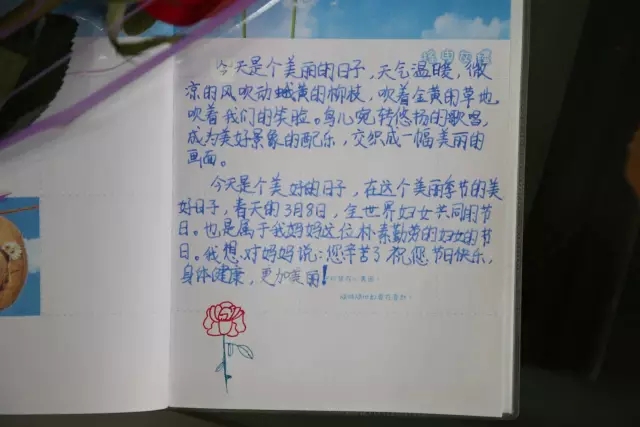 今天是个美丽的日子，天气温暖，微
凉的风吹动蛾黄的柳枝，吹着金黄的草地，
吹着我们的笑脸。鸟儿宛转悠扬的歌唱，
成为美好景象的配乐，交织成一幅美丽的
画面。
今天是个美好的日子，在这个美丽季节的美
好日子，春天的3月8日，全世界妇女共同的节
日。也是属于我妈妈这位朴素勤劳的妇女的节
日。我想对妈妈说：您辛苦了祝您节日快乐，
身体健康，更加美丽！